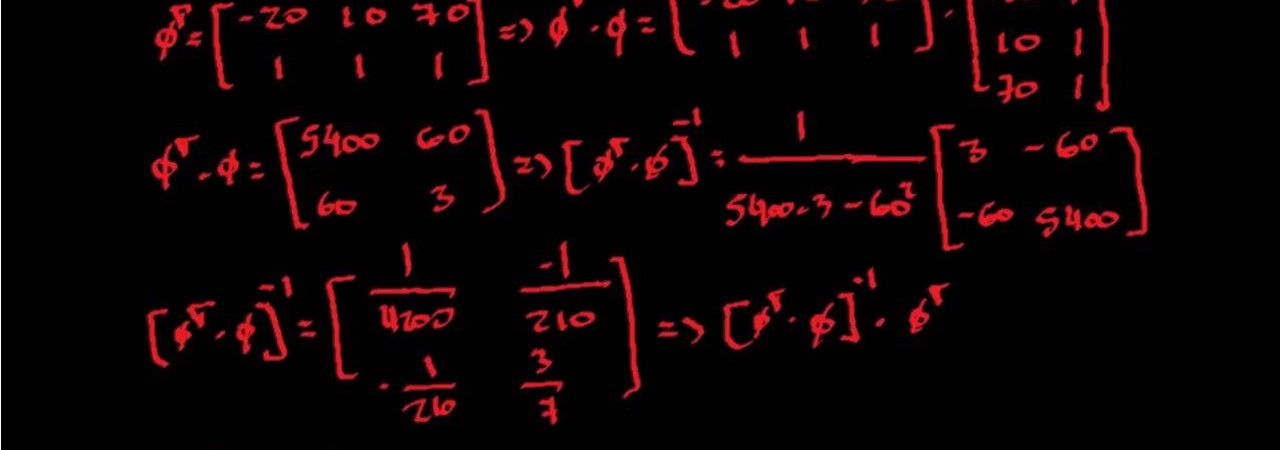 ϕᵀ = [ -20 10 70 ; 1 1 1 ] => ϕᵀ · ϕ = [ 1 1 1 ] · [ 10 1 ; 70 1 ]
ϕᵀ · ϕ = [ 5400 60 ; 60 3 ] => [ϕᵀ · ϕ]⁻¹ = 1 / (5400·3 - 60²) [ 3 -60 ; -60 5400 ]
[ϕᵀ · ϕ]⁻¹ = [ 1/4200 -1/210 ; -1/210 3/7 ] => [ϕᵀ · ϕ]⁻¹ · ϕᵀ